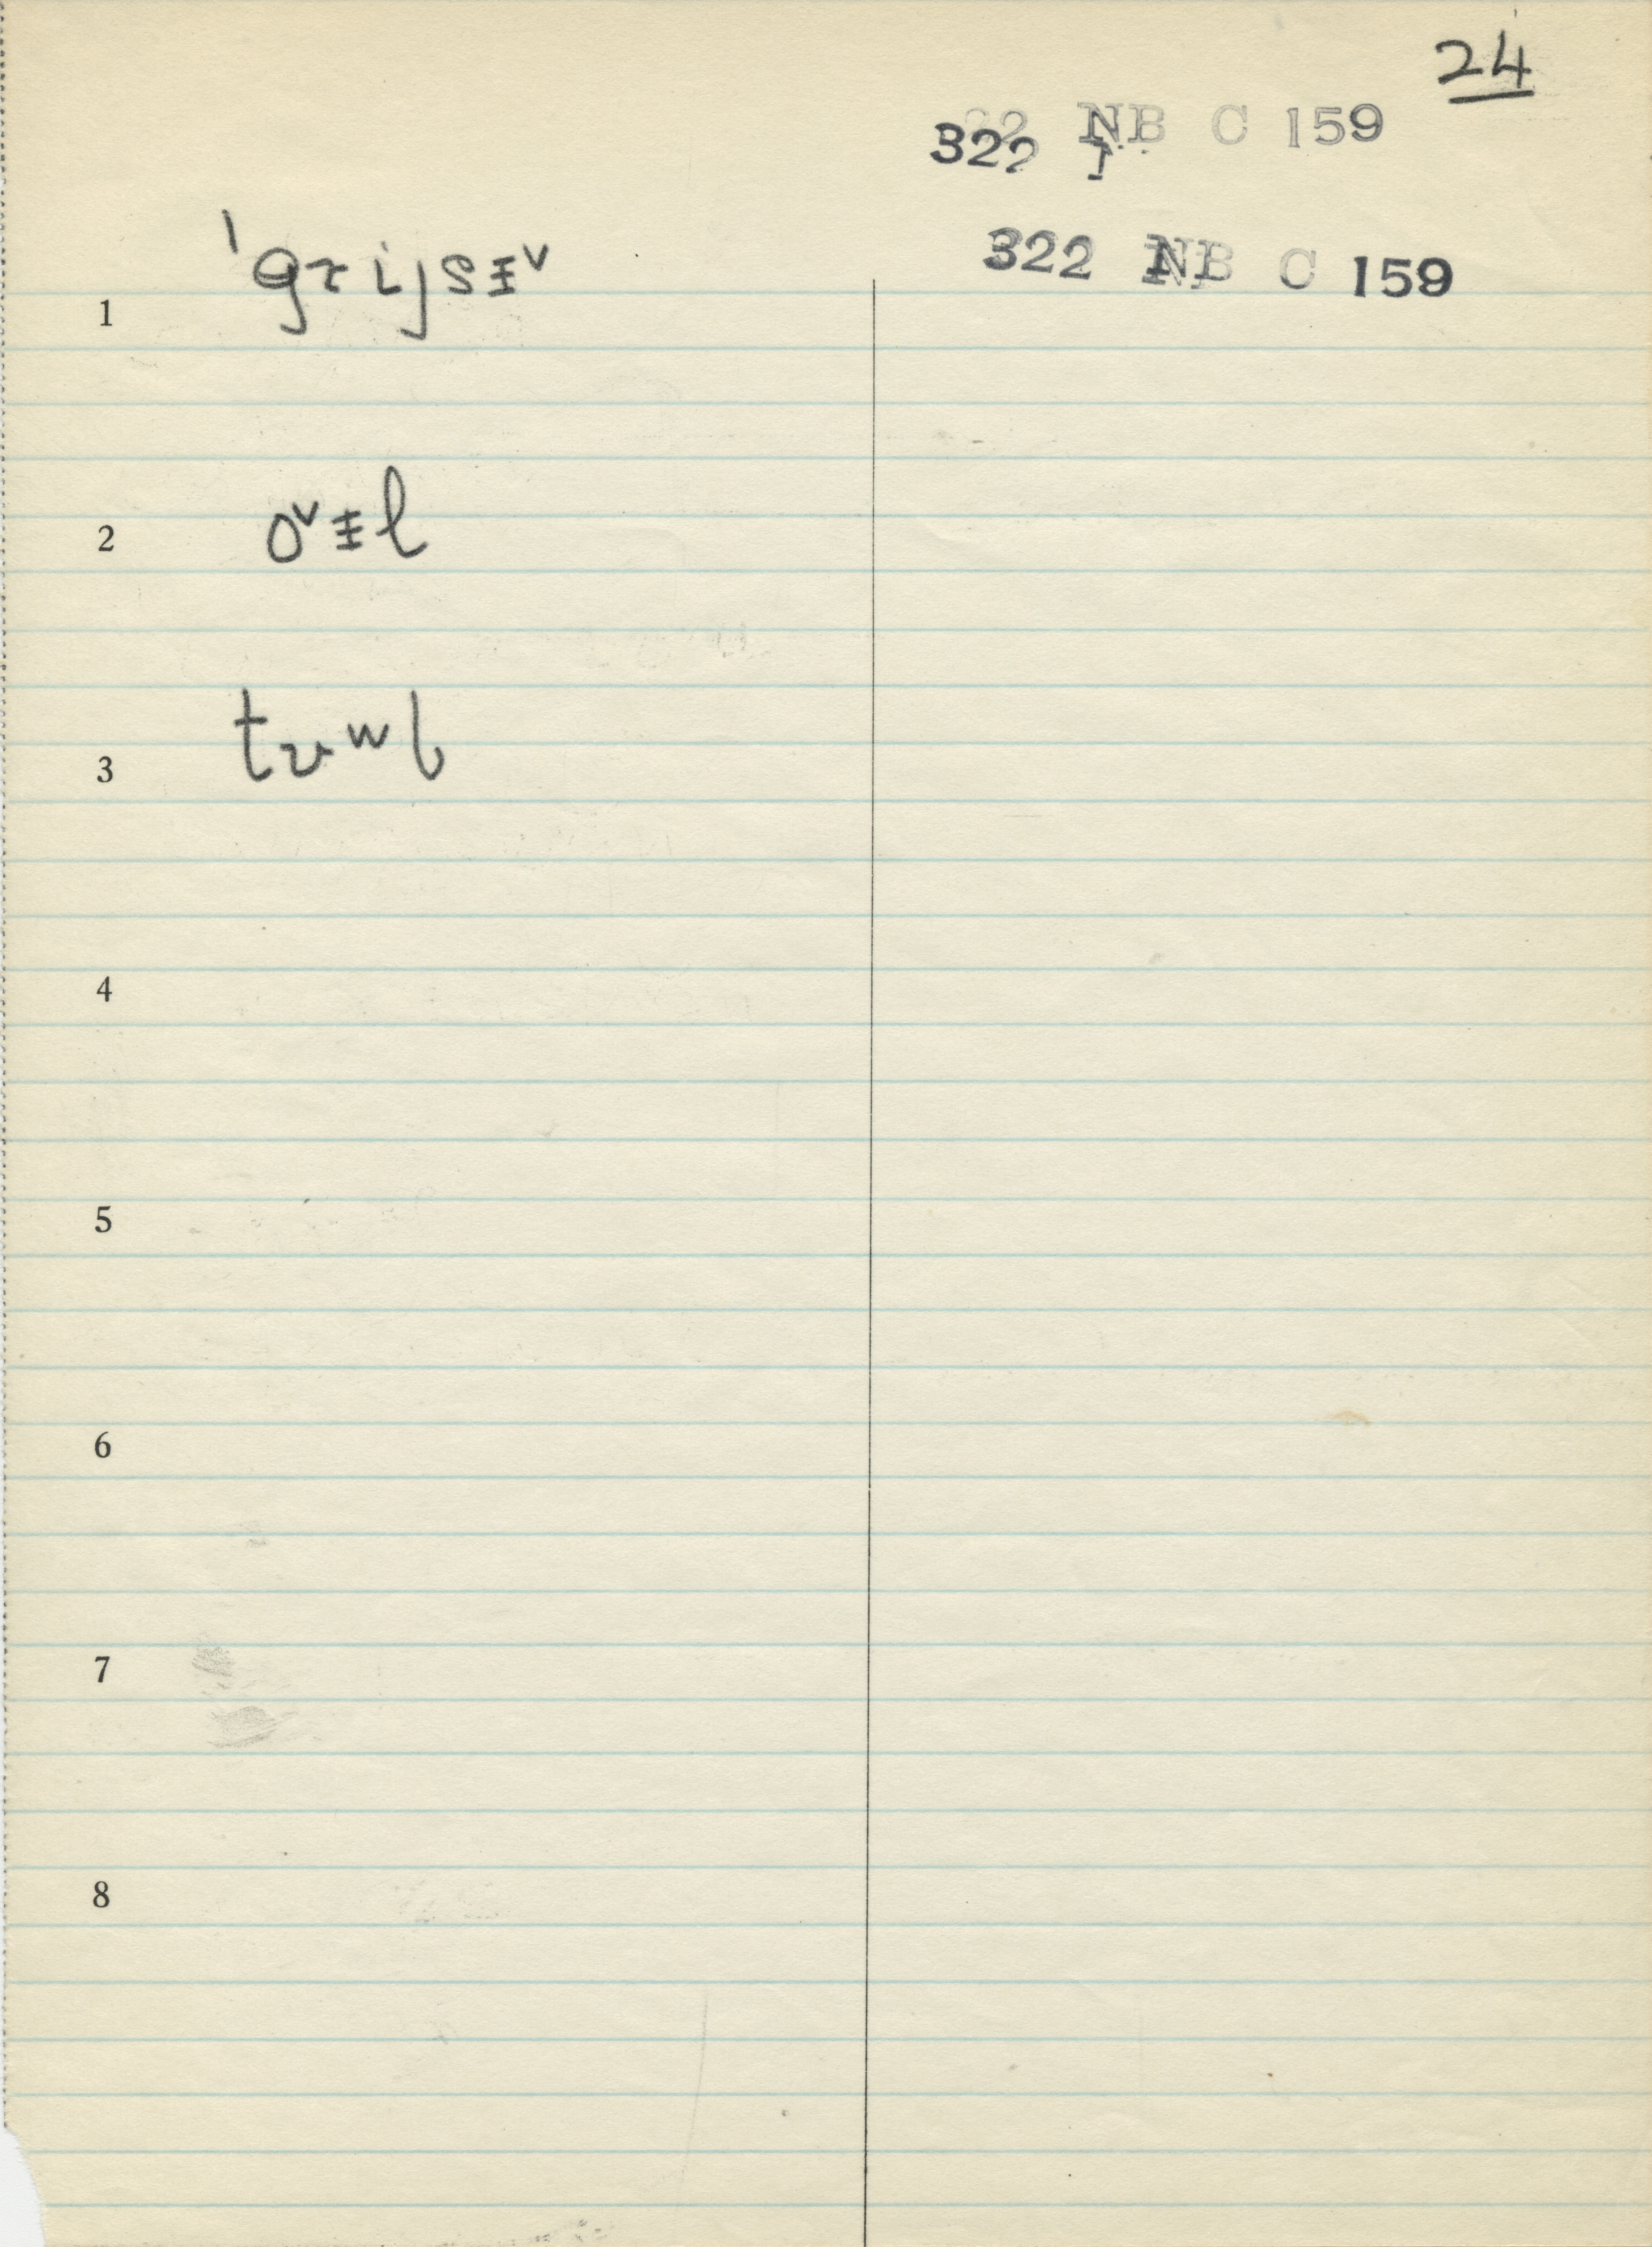 24
322 NB C 159
322 NB C 159
1 ˈgɤijsɨᵛ
2 oᵛɨl
3 tʋʷl
4
5
6
7
8